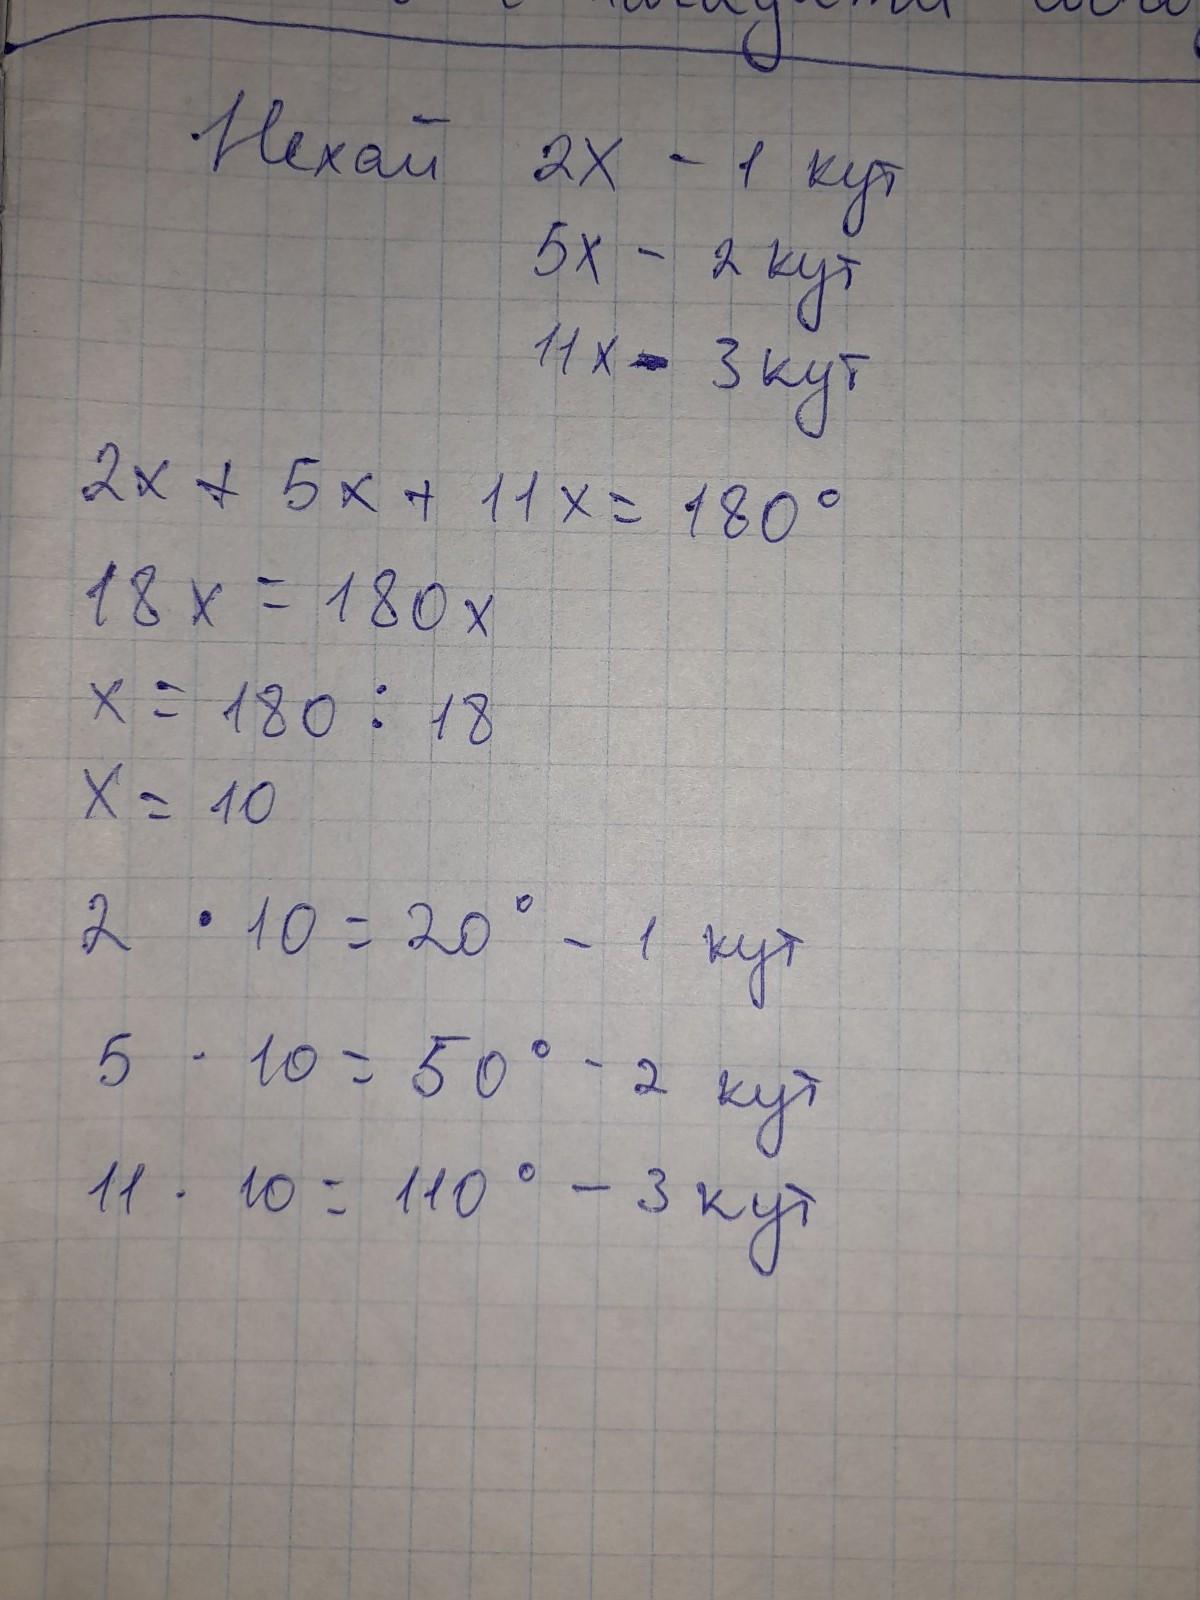 Нехай 2x - 1 кут
5x - 2 кут
11x - 3 кут
2x + 5x + 11x = 180°
18x = 180x
x = 180 : 18
x = 10
2 · 10 = 20° - 1 кут
5 · 10 = 50° - 2 кут
11 · 10 = 110° - 3 кут